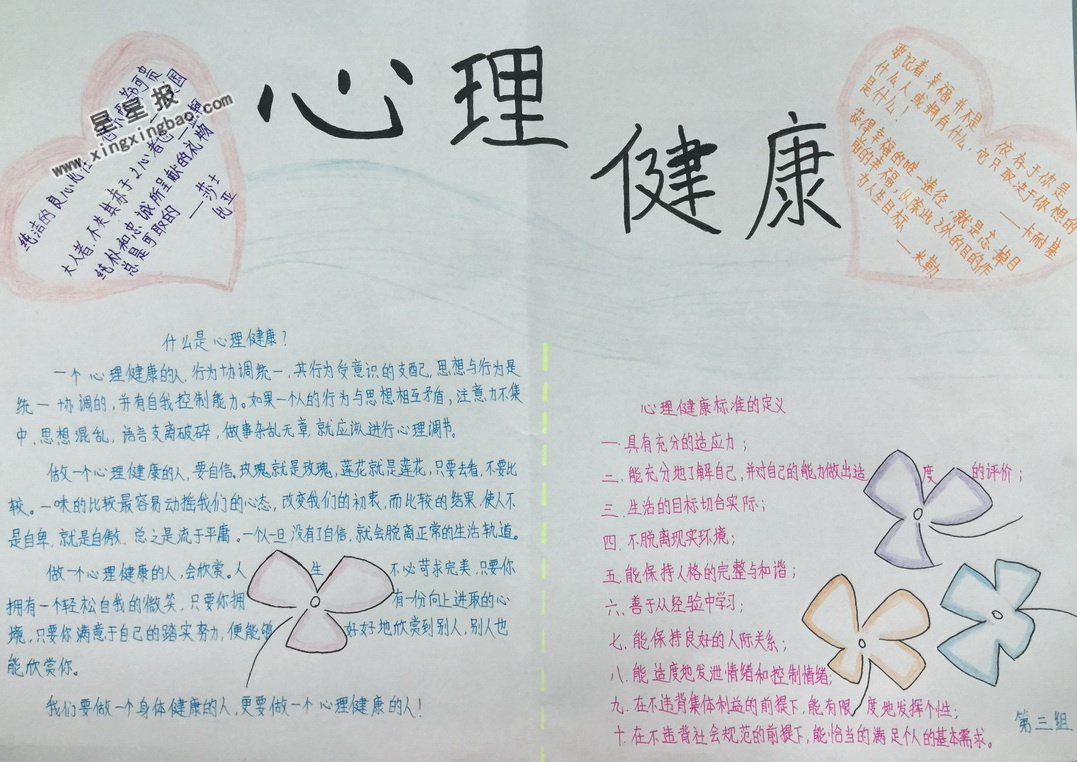 心理
健康
星星报
www.xingxingbao.com
纯洁的良心比任
大人者,不失其赤子之心者也
纯朴和忠诚所呈献的礼物
总是可取的
——莎士
比亚
要记着幸福并不是
依存于你是
什么人或拥有什么,它只取决于你想的
是什么!
——卡耐基
获得幸福的唯一途径,就是忘掉目
前的幸福,以除此之外的目的作
为人生目标
——米勒
什么是心理健康?
一个心理健康的人,行为协调统一,其行为受意识的支配,思想与行为是
统一协调的,并有自我控制能力。如果一个人的行为与思想相互矛盾,注意力不集
中、思想混乱,语言支离破碎,做事杂乱无章,就应该进行心理调节。
做一个心理健康的人,要自信。玫瑰就是玫瑰,莲花就是莲花,只要去看,不要比
较。一味的比较最容易动摇我们的心态,改变我们的初衷,而比较的结果,使人不
是自卑,就是自傲,总之是流于平庸。一个人一旦没有了自信,就会脱离正常的生活轨道。
做一个心理健康的人,会欣赏。人生不必苛求完美,只要你
拥有一个轻松自我的微笑,只要你拥有一份向上进取的心
境,只要你满意于自己的踏实努力,便能够好好地欣赏到别人,别人也
能欣赏你。
我们要做一个身体健康的人,更要做一个心理健康的人!
心理健康标准的定义
一.具有充分的适应力;
二.能充分地了解自己,并对自己的能力做出适度的评价;
三.生活的目标切合实际;
四.不脱离现实环境;
五.能保持人格的完整与和谐;
六.善于从经验中学习;
七.能保持良好的人际关系;
八.能适度地发泄情绪和控制情绪;
九.在不违背集体利益的前提下,能有限度地发挥个性;
十.在不违背社会规范的前提下,能恰当的满足个人的基本需求。
第三组